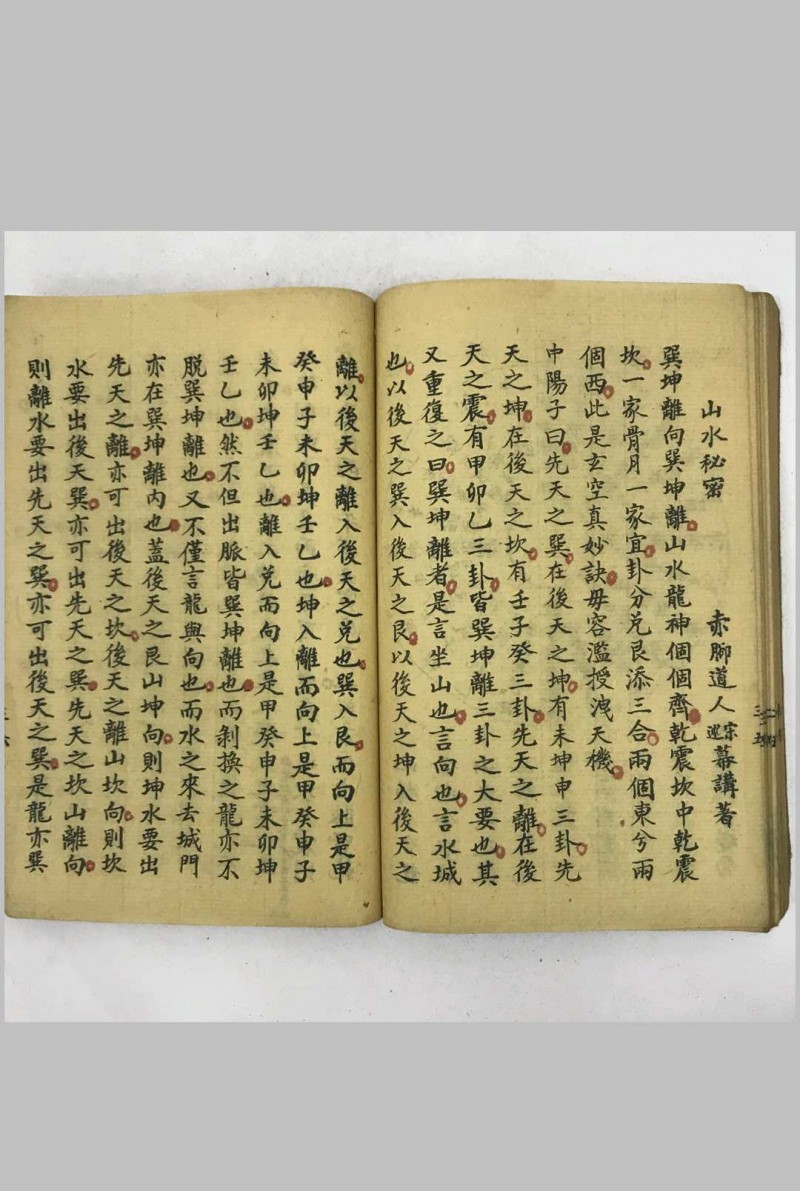 山水秘密　赤脚道人宗述幕講著
巽坤離向巽坤離山水龍神個個齊乾震坎中乾震
坎一家骨月一家宜卦分兑艮添三合兩個東兮兩
個西此是玄空真妙訣毋容濫授洩天機
中陽子曰先天之巽在後天之坤有未坤申三卦先
天之坤在後天之坎有壬子癸三卦先天之離在後
天之震有甲卯乙三卦皆巽坤離三卦之大要也其
又重復之曰巽坤離者是言坐山也言向也言水城
也以後天之巽入後天之艮以後天之坤入後天之
離以後天之離入後天之兑也巽入艮而向上是甲
癸申子未卯坤壬乙也坤入離而向上是甲癸申子
未卯坤壬乙也離入兑而向上是甲癸申子未卯坤
壬乙也然不但出脈皆巽坤離也而剝換之龍亦不
脱巽坤離也又不僅言龍與向也而水之來去城門
亦在巽坤離内也蓋後天之艮山坤向則坤水要出
先天之離亦可出後天之坎後天之離山坎向則坎
水要出後天巽亦可出先天之巽先天之坎山離向
則離水要出先天之巽亦可出後天之巽是龍亦巽